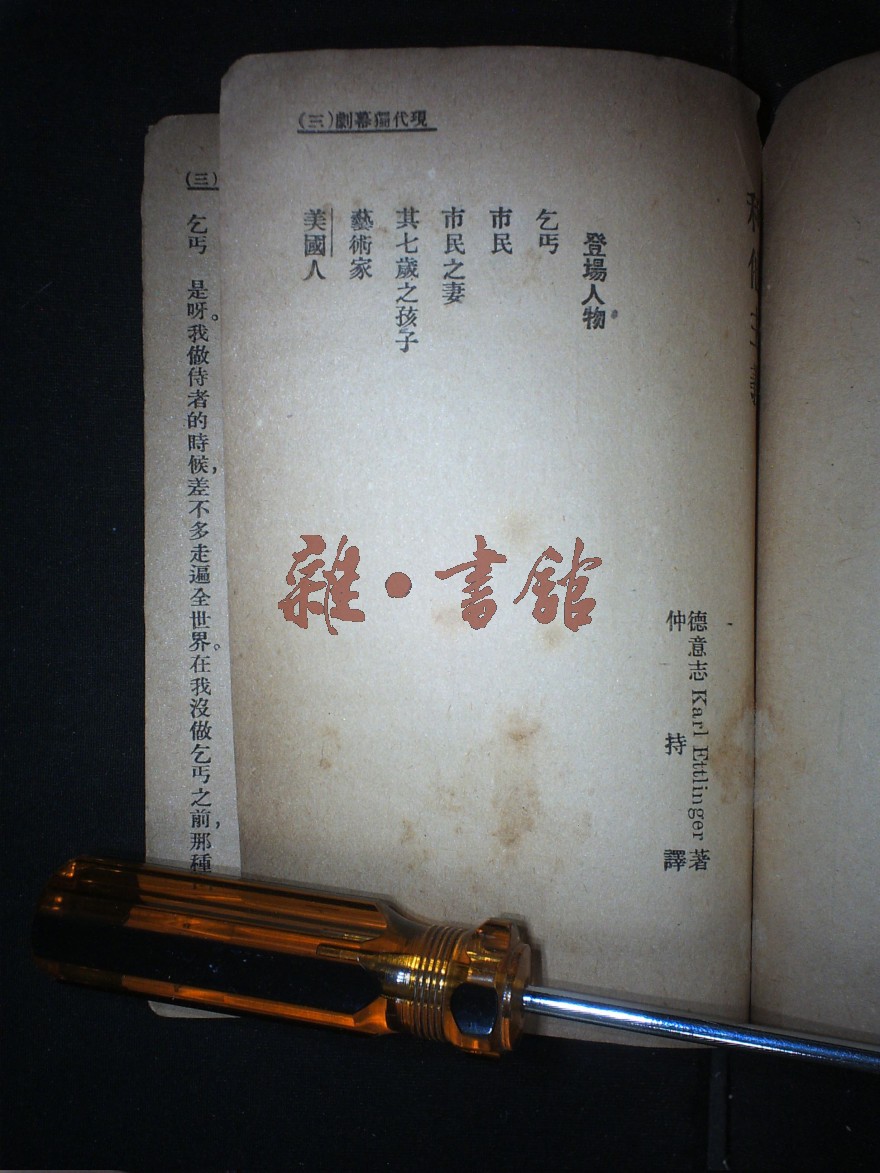 現代獨幕劇(三)
德意志 Karl Ettlinger 著
仲持譯
登場人物
乞丐
市民
市民之妻
其七歲之孩子
藝術家
美國人
(三)
乞丐　是呀。我做侍者的時候，差不多走遍全世界。在我沒做乞丐之前，那種
雜·書館